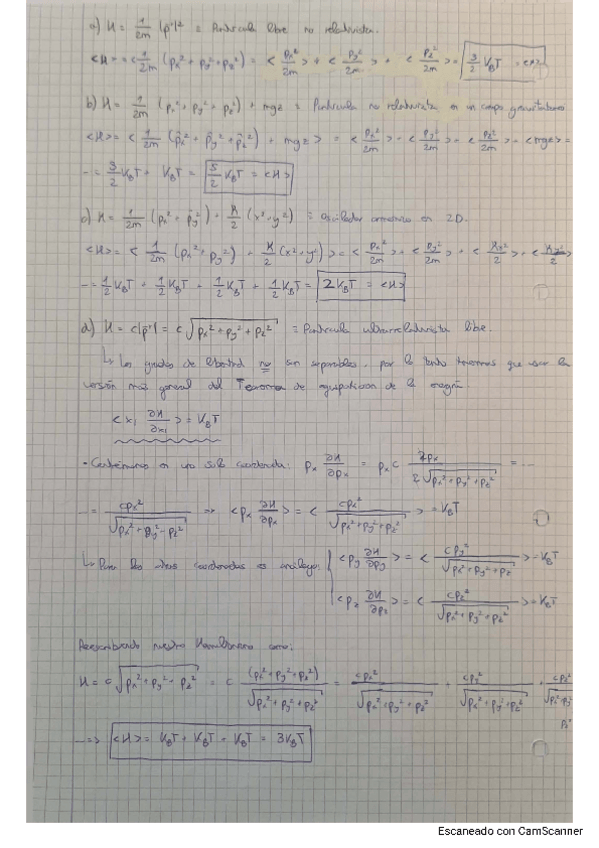 a) H = 1/2m |p⃗|² ≡ Partícula libre no relativista.
<H> = <1/2m (px² + py² + pz²)> = <px²/2m> + <py²/2m> + <pz²/2m> = 3/2 KBT = <H>
b) H = 1/2m (px² + py² + pz²) + mgz ≡ Partícula no relativista en un campo gravitatorio
<H> = <1/2m (px² + py² + pz²) + mgz> = <px²/2m> + <py²/2m> + <pz²/2m> + <mgz> =
= 3/2 KBT + KBT = 5/2 KBT = <H>
c) H = 1/2m (px² + py²) + K/2 (x² + y²) ≡ Oscilador armónico en 2D.
<H> = <1/2m (px² + py²) + K/2 (x² + y²)> = <px²/2m> + <py²/2m> + <Kx²/2> + <Ky²/2>
= 1/2 KBT + 1/2 KBT + 1/2 KBT + 1/2 KBT = 2KBT = <H>
d) H = c|p⃗| = c √(px² + py² + pz²) ≡ Partícula ultrarrelativista libre.
↳ Los grados de libertad no son separables, por lo tanto tenemos que usar la
versión más general del Teorema de equipartición de la energía
<xi ∂H/∂xi> = KBT
• Centrémonos en una sola coordenada: px ∂H/∂px = px c 2px / 2√(px² + py² + pz²) = ...
= cpx² / √(px² + py² + pz²) => <px ∂H/∂px> = <cpx² / √(px² + py² + pz²)> = KBT
↳ Para las otras coordenadas es análogo: <py ∂H/∂py> = <cpy² / √(px² + py² + pz²)> = KBT
<pz ∂H/∂pz> = <cpz² / √(px² + py² + pz²)> = KBT
Reescribiendo nuestro Hamiltoniano como:
H = c √(px² + py² + pz²) = c (px² + py² + pz²) / √(px² + py² + pz²) = cpx² / √(px² + py² + pz²) + cpy² / √(px² + py² + pz²) + cpz² / √(px² + py² + pz²)
=> <H> = KBT + KBT + KBT = 3KBT
Escaneado con CamScanner